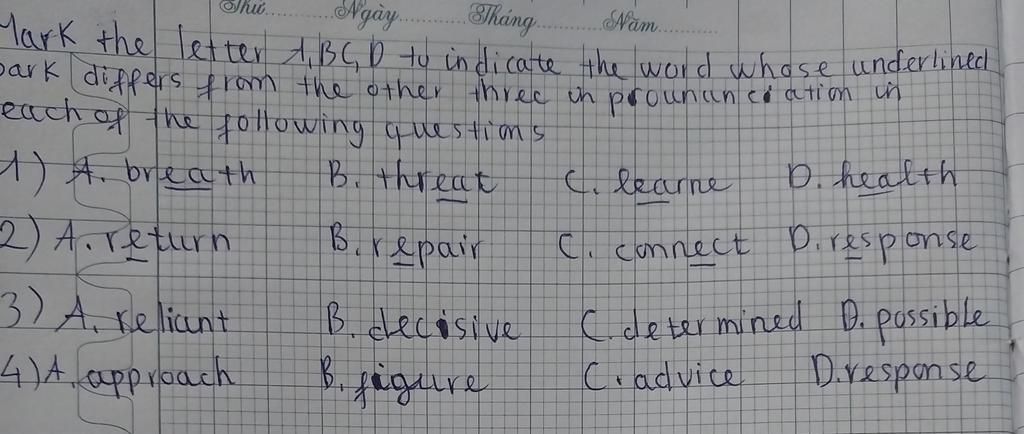 Thứ Ngày Tháng Năm
Mark the letter A,B,C,D to indicate the word whose underlined
park differs from the other three in prounun ciation in
each of the following questions
1) A. breath B. threat C. learne D. health
2) A. return B. repair C. connect D. response
3) A. reliant B. decisive C. determined D. possible
4) A. approach B. figure C. advice D. response